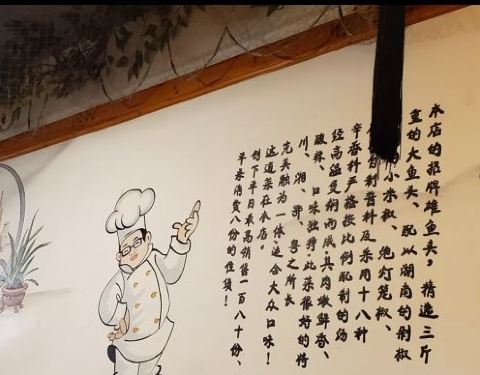 本店的招牌雄鱼头，精选三斤
重的大鱼头、配以湖南的剁椒
小米椒、泡灯笼椒、
自制酱料及采用十八种
辛香料严格按比例配制的汤
经高温烹焖而成其肉嫩鲜香、
酸辣、口味独特，此菜很好的将
川、湘、鄂、粤之所长
完美融为一体，适合大众口味！
这道菜在本店，
创下单日最高销售一百八十份、
单来消费八份的佳绩！